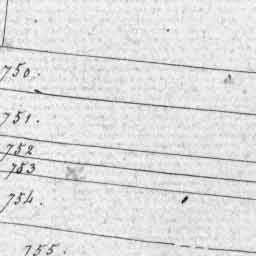 750.
751.
752
753
754.
755.